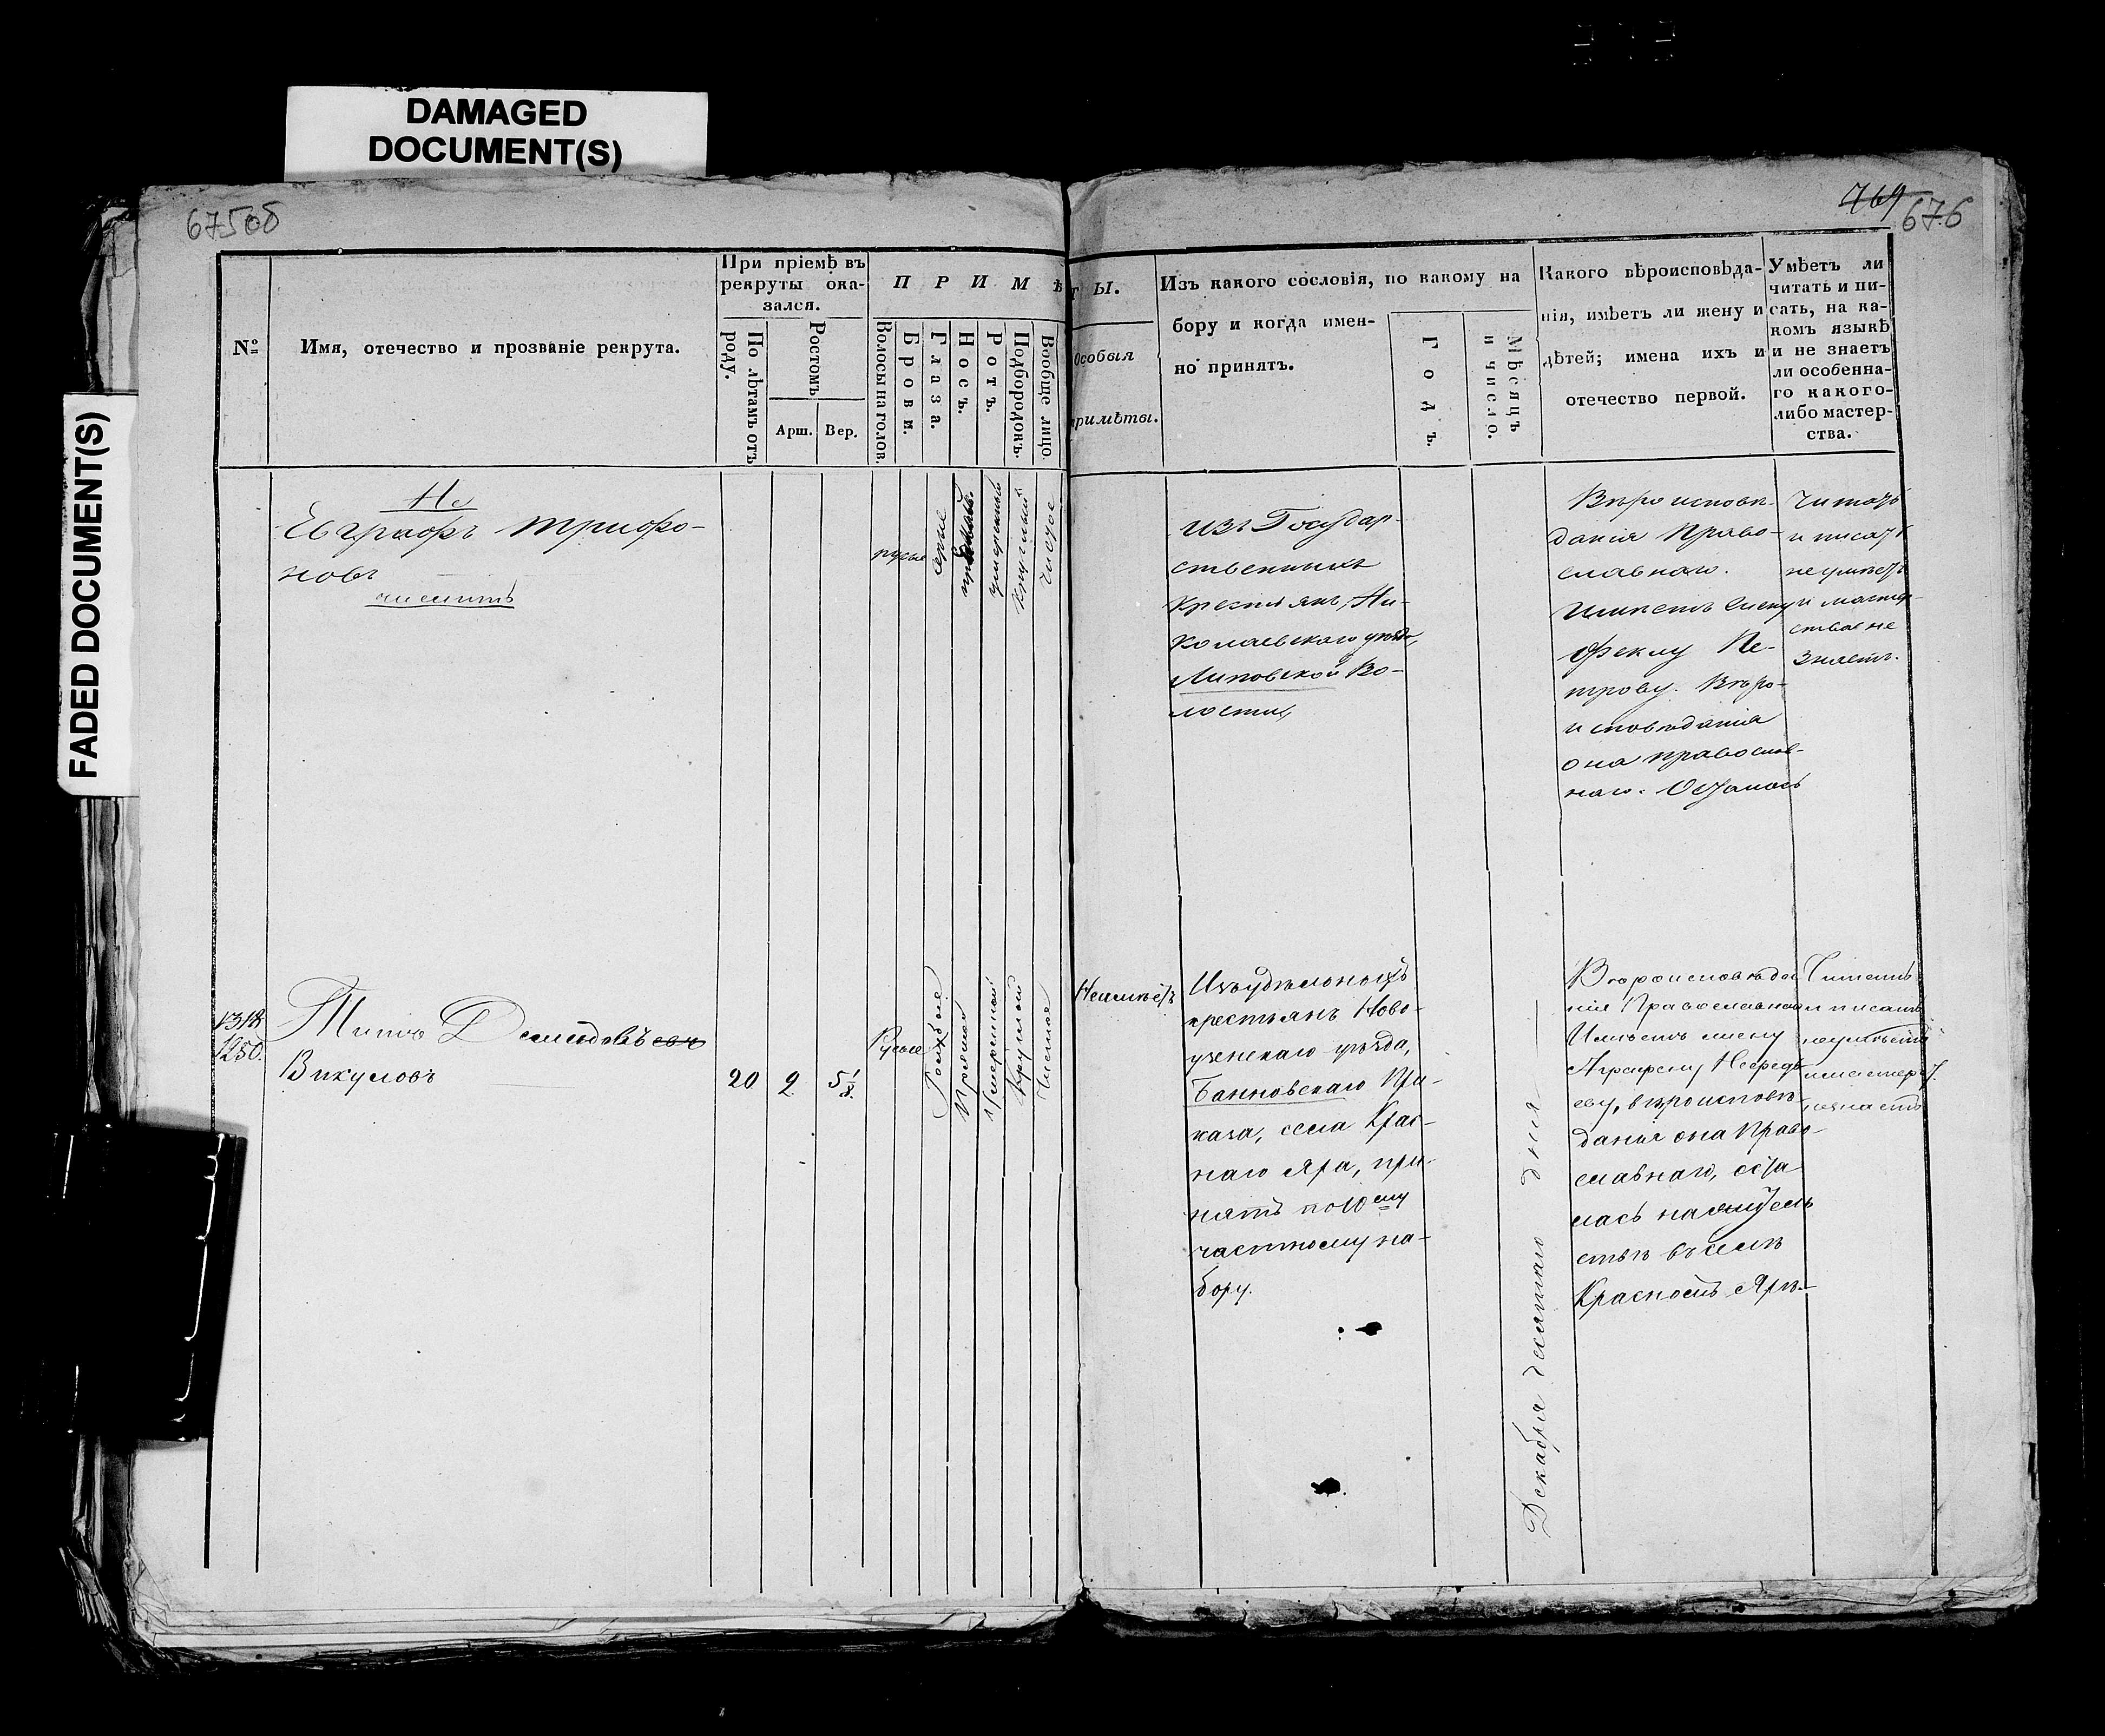 DAMAGED
DOCUMENT(S)
FADED DOCUMENT(S)
675об
769
676
№
Имя, отечество и прозваніе рекрута.
При пріемѣ въ
рекруты ока-
зался.
По лѣтамъ отъ
роду.
Ростомъ
Арш.
Вер.
ПРИМѢ
Волосы на голов.
Брови.
Глаза.
Носъ.
Ротъ.
Подбородокъ.
Вообще лицо
ТЫ.
Особыя
примѣты.
Изъ какого сословія, по какому на
бору и когда имен-
но принятъ.
Годъ.
Мѣсяцъ
и число.
Какого вѣроисповѣда-
нія, имѣетъ ли жену и
дѣтей; имена ихъ и
отечество первой.
Умѣетъ ли
читать и пи-
сать, на ка-
комъ языкѣ
и не знаетъ
ли особенна-
го какого-
либо мастер-
ства.
Не
Евграфъ Трифо-
новъ
числить
русые
серые
умеренный
круглый
чистое
изъ Государ-
ственныхъ
крестьянъ, Ни-
колаевскаго уѣзда,
Липовской Во-
лости,
Вѣроисповѣ-
данія Право-
славнаго.
Имѣетъ жену
Феклу Пе-
трову. Вѣро-
исповѣданія
она православ-
наго. Осталась
Читать
и писать
не умѣетъ
и мастер-
ства не
знаетъ.
1318
1250.
Титъ Демидовъ евъ
Викуловъ
20
2
5 1/8.
Русые
Голубые
Прямой
Умеренный
Круглый
Чистое
Неимѣетъ
Изъ удѣльныхъ
крестьянъ Ново-
узенскаго уѣзда,
Банновскаго При-
каза, села Крас-
наго Яра, при-
нятъ по 10ому
частному на-
бору.
Декабря десятаго дня
Вѣроисповѣда
нія Православнаго
Имѣетъ жену
еву, вѣроисповѣ-
данія она Право-
славнаго, оста
лась на
ствѣ въ селѣ
Красномъ Ярѣ.
Читать
и писать
неумѣетъ
и мастер.
незнаетъ